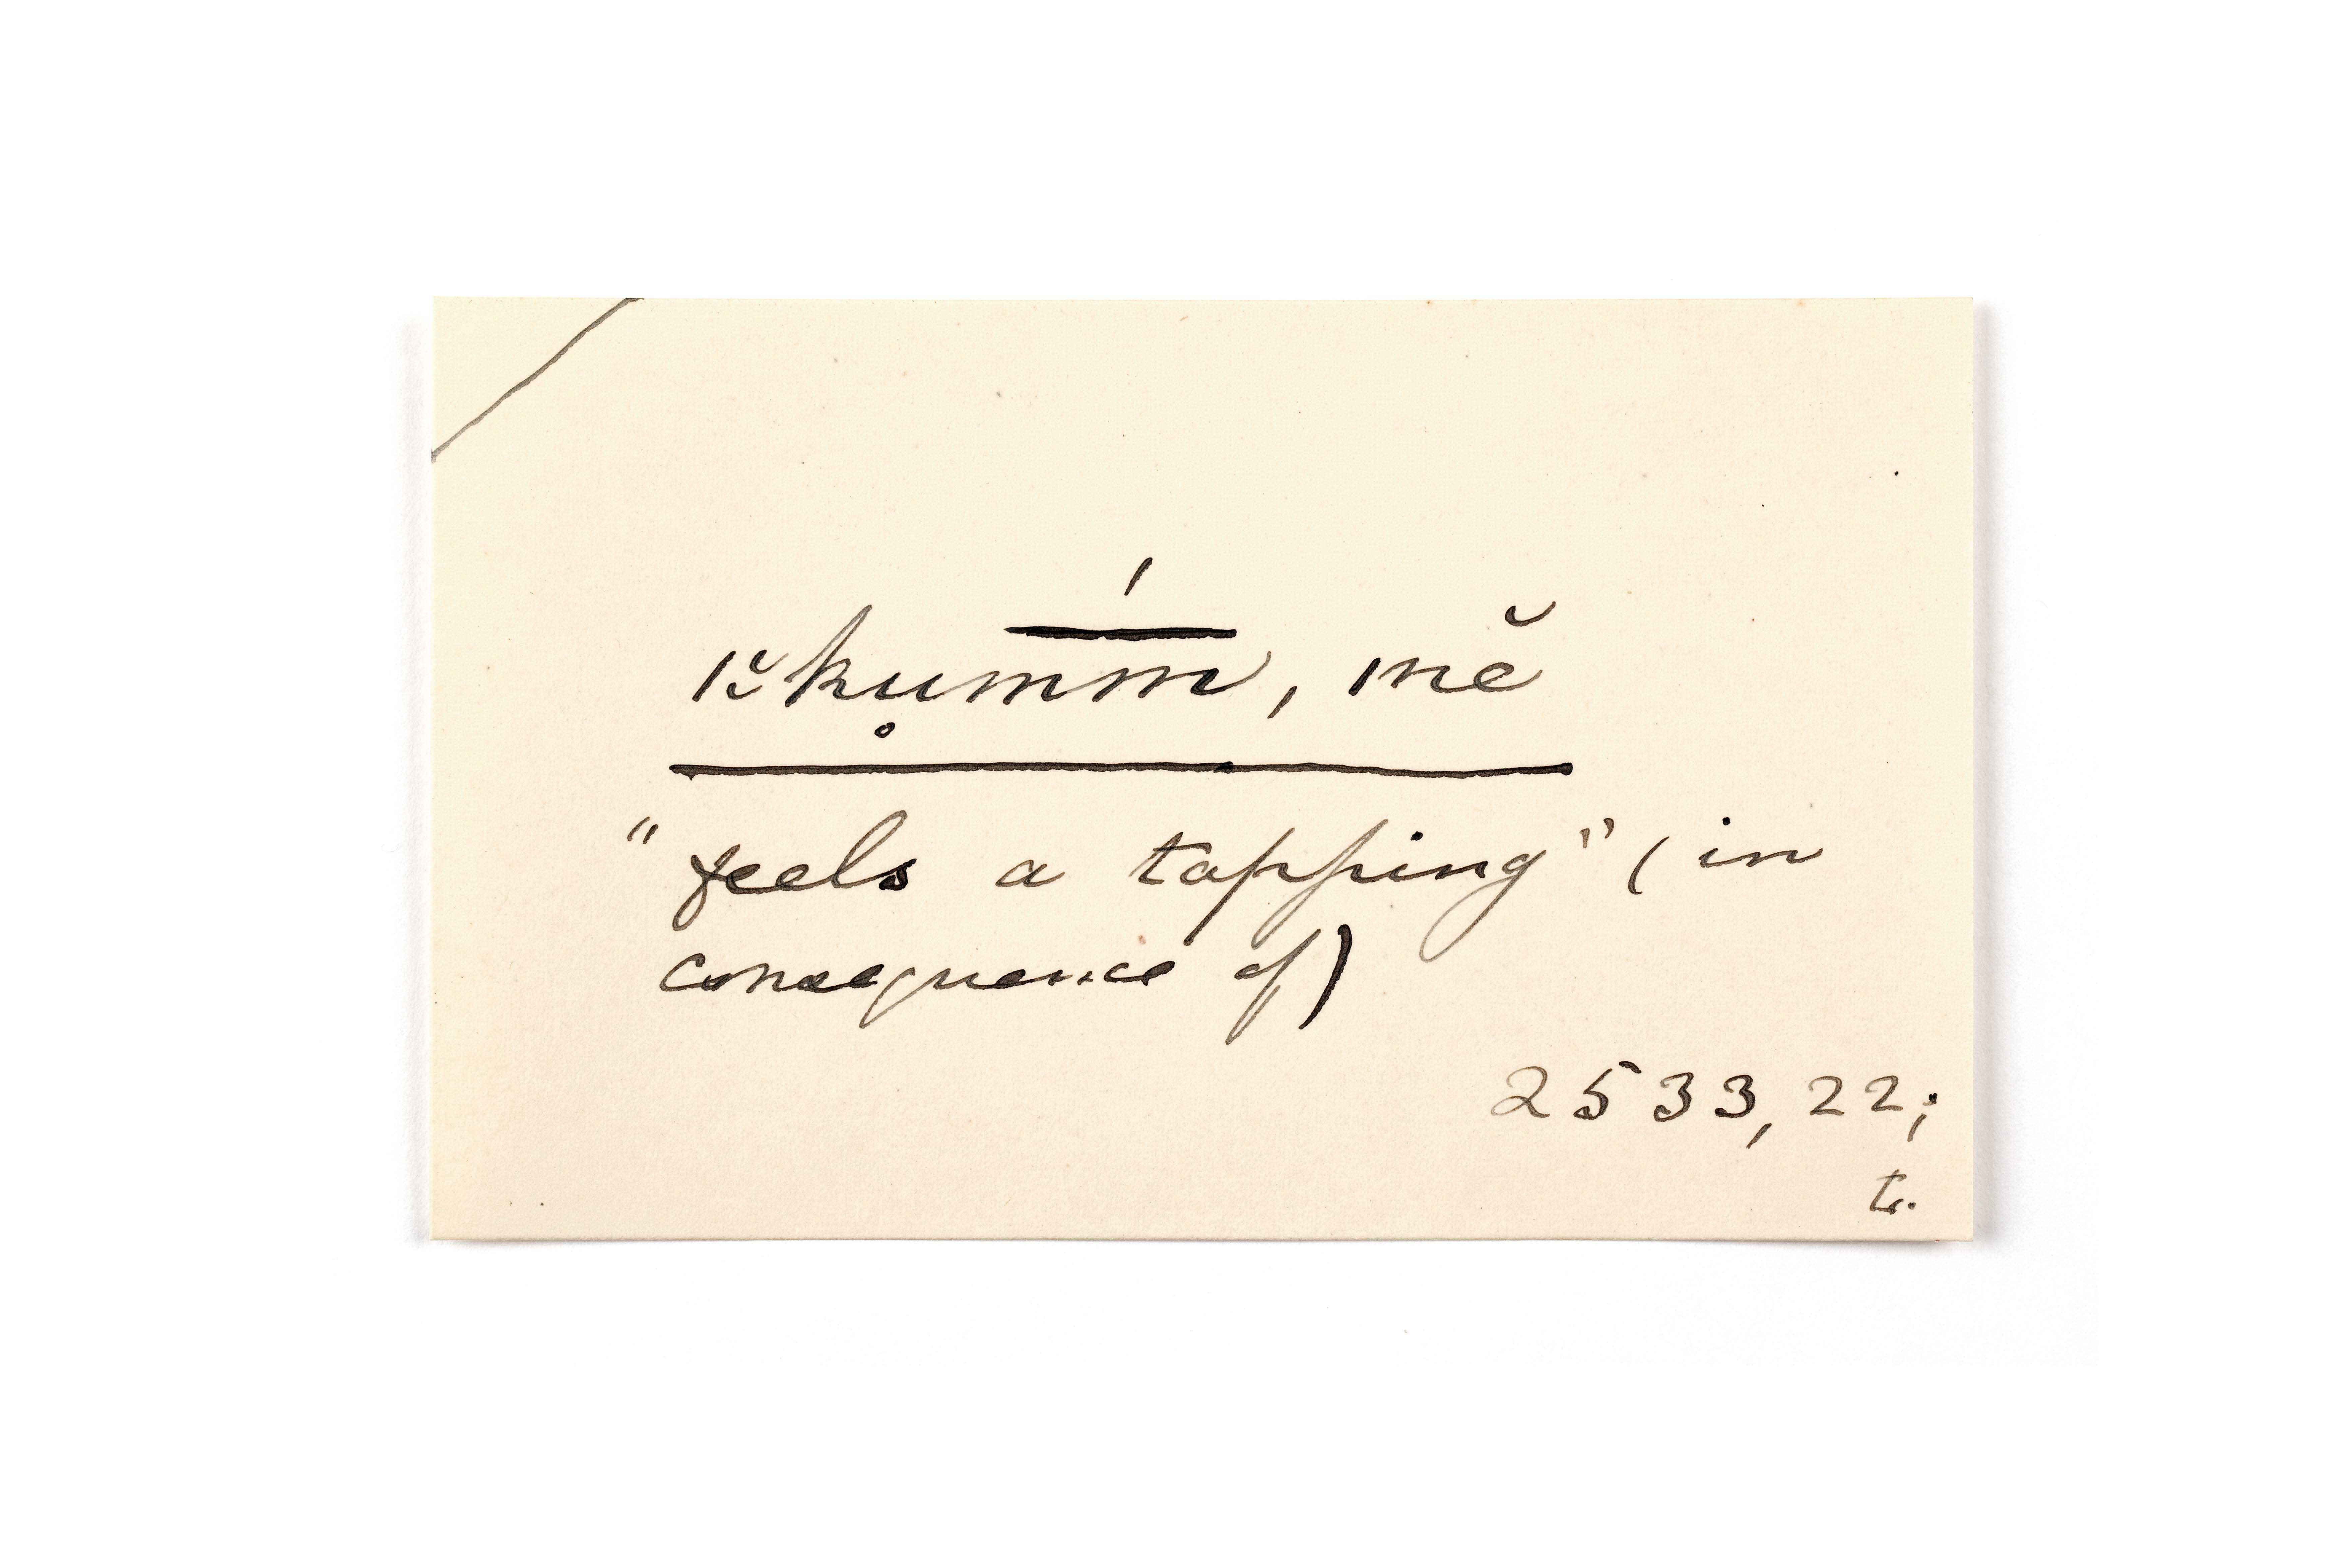 ǀχku̥m̅́m̅, ǀnĕ
"feels a tapping" (in
consequence of)
2533, 22;
t.